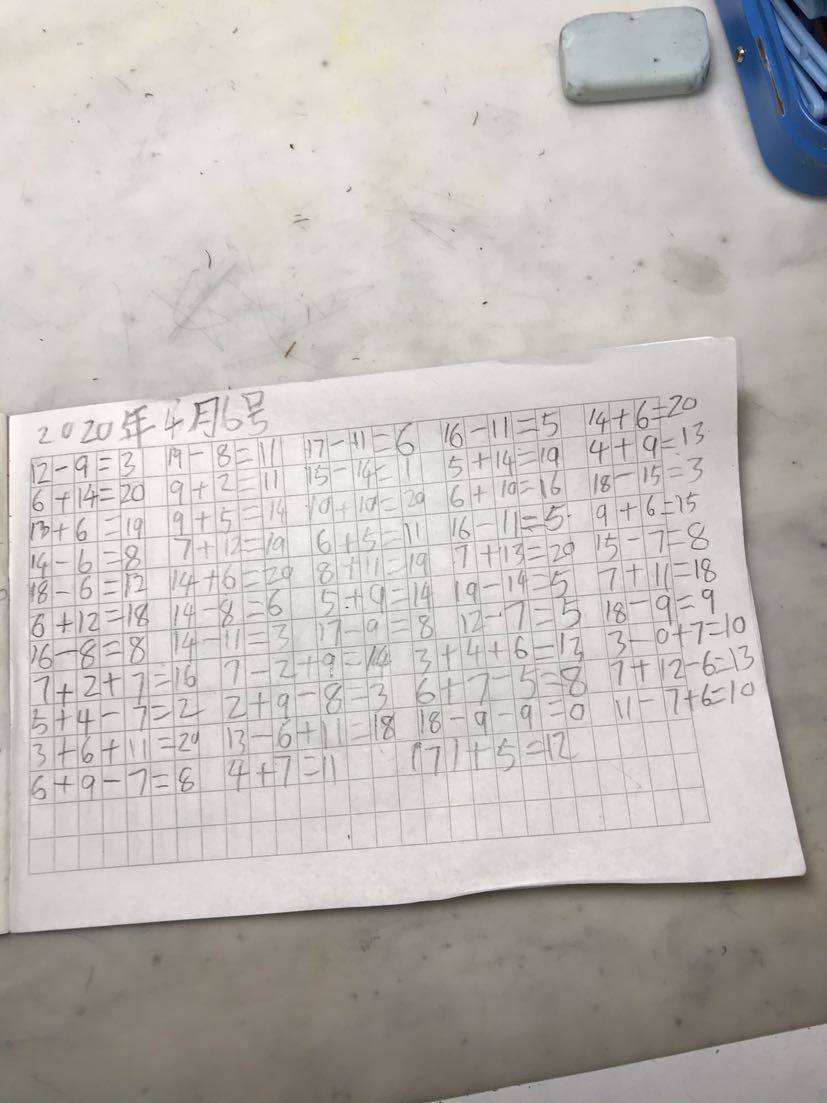 2020年4月6号
12-9=3 19-8=11 17-11=6 16-11=5 14+6=20
6+14=20 9+2=11 15-14=1 5+14=19 4+9=13
13+6=19 9+5=14 10+10=20 6+10=16 18-15=3
14-6=8 7+12=19 6+5=11 16-11=5 9+6=15
18-6=12 14+6=20 8+11=19 7+13=20 15-7=8
6+12=18 14-8=6 5+9=14 19-14=5 7+11=18
16-8=8 14-11=3 17-9=8 12-7=5 18-9=9
7+2+7=16 7-2+9=14 3+4+6=13 3-0+7=10
5+4-7=2 2+9-8=3 6+7-5=8 7+12-6=13
3+6+11=20 13-6+11=18 18-9-9=0 11-7+6=10
6+9-7=8 4+7=11 (7)+5=12